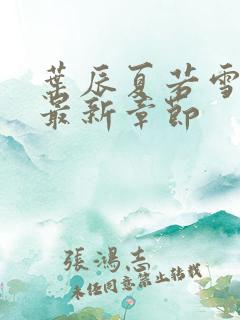 葉辰夏若雪
最新章節
張鴻志
未經同意禁止轉載